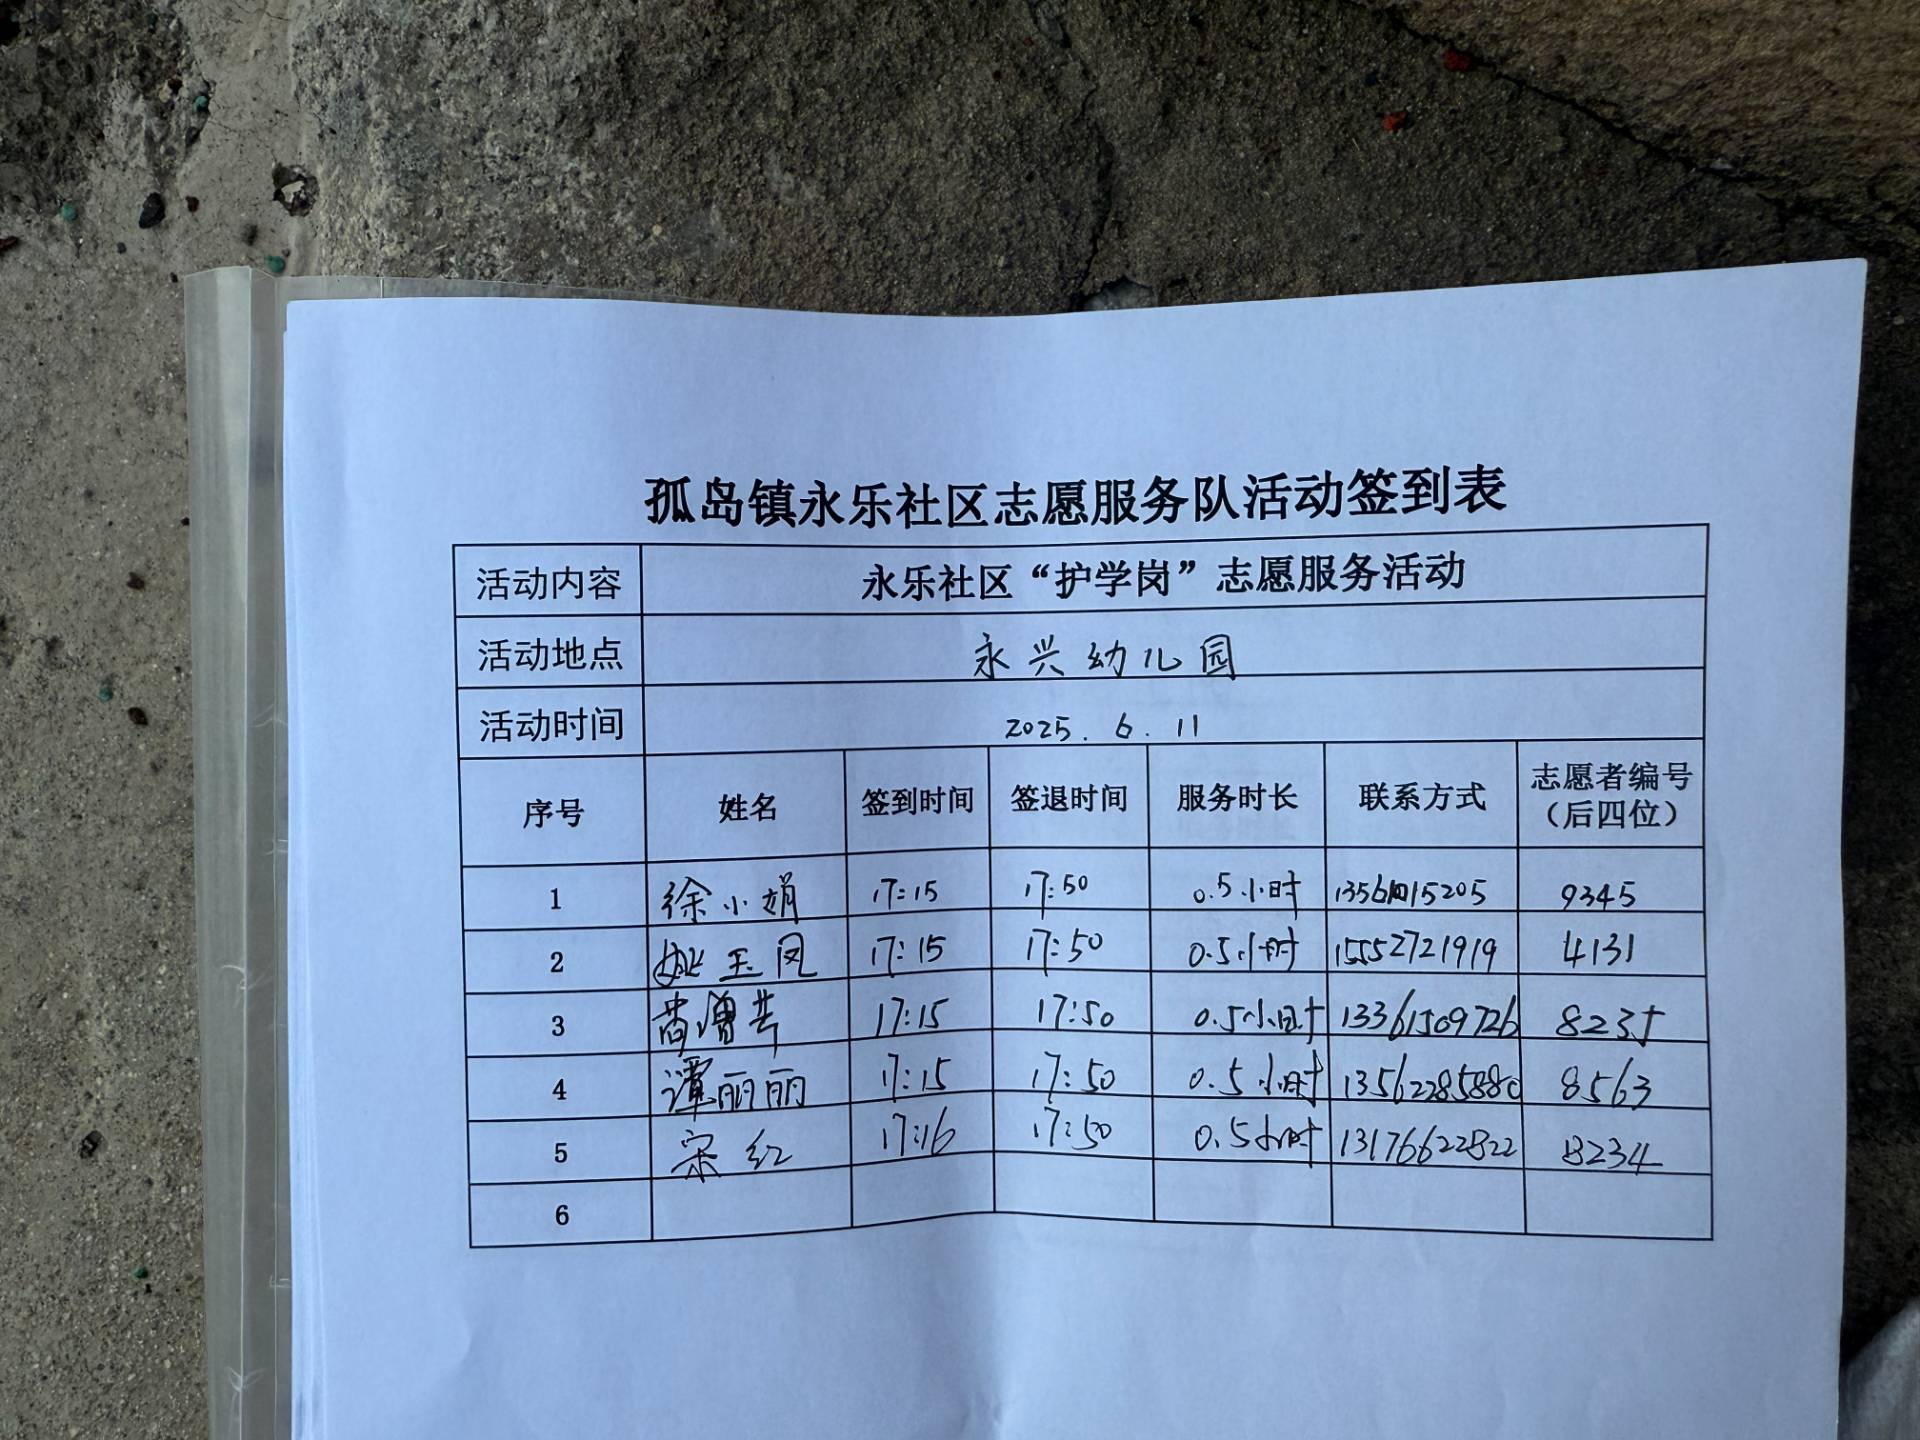 孤岛镇永乐社区志愿服务队活动签到表
活动内容 永乐社区“护学岗”志愿服务活动
活动地点 永兴幼儿园
活动时间 2025.6.11
序号 姓名 签到时间 签退时间 服务时长 联系方式 志愿者编号（后四位）
1 徐小娟 17:15 17:50 0.5小时 9345
2 姚玉凤 17:15 17:50 0.5小时 15552721919 4131
3 17:15 17:50 0.5小时 13361509726 8235
4 谭丽丽 17:15 17:50 0.5小时 13562285880 8563
5 宋红 17:16 17:50 0.5小时 13176622822 8234
6